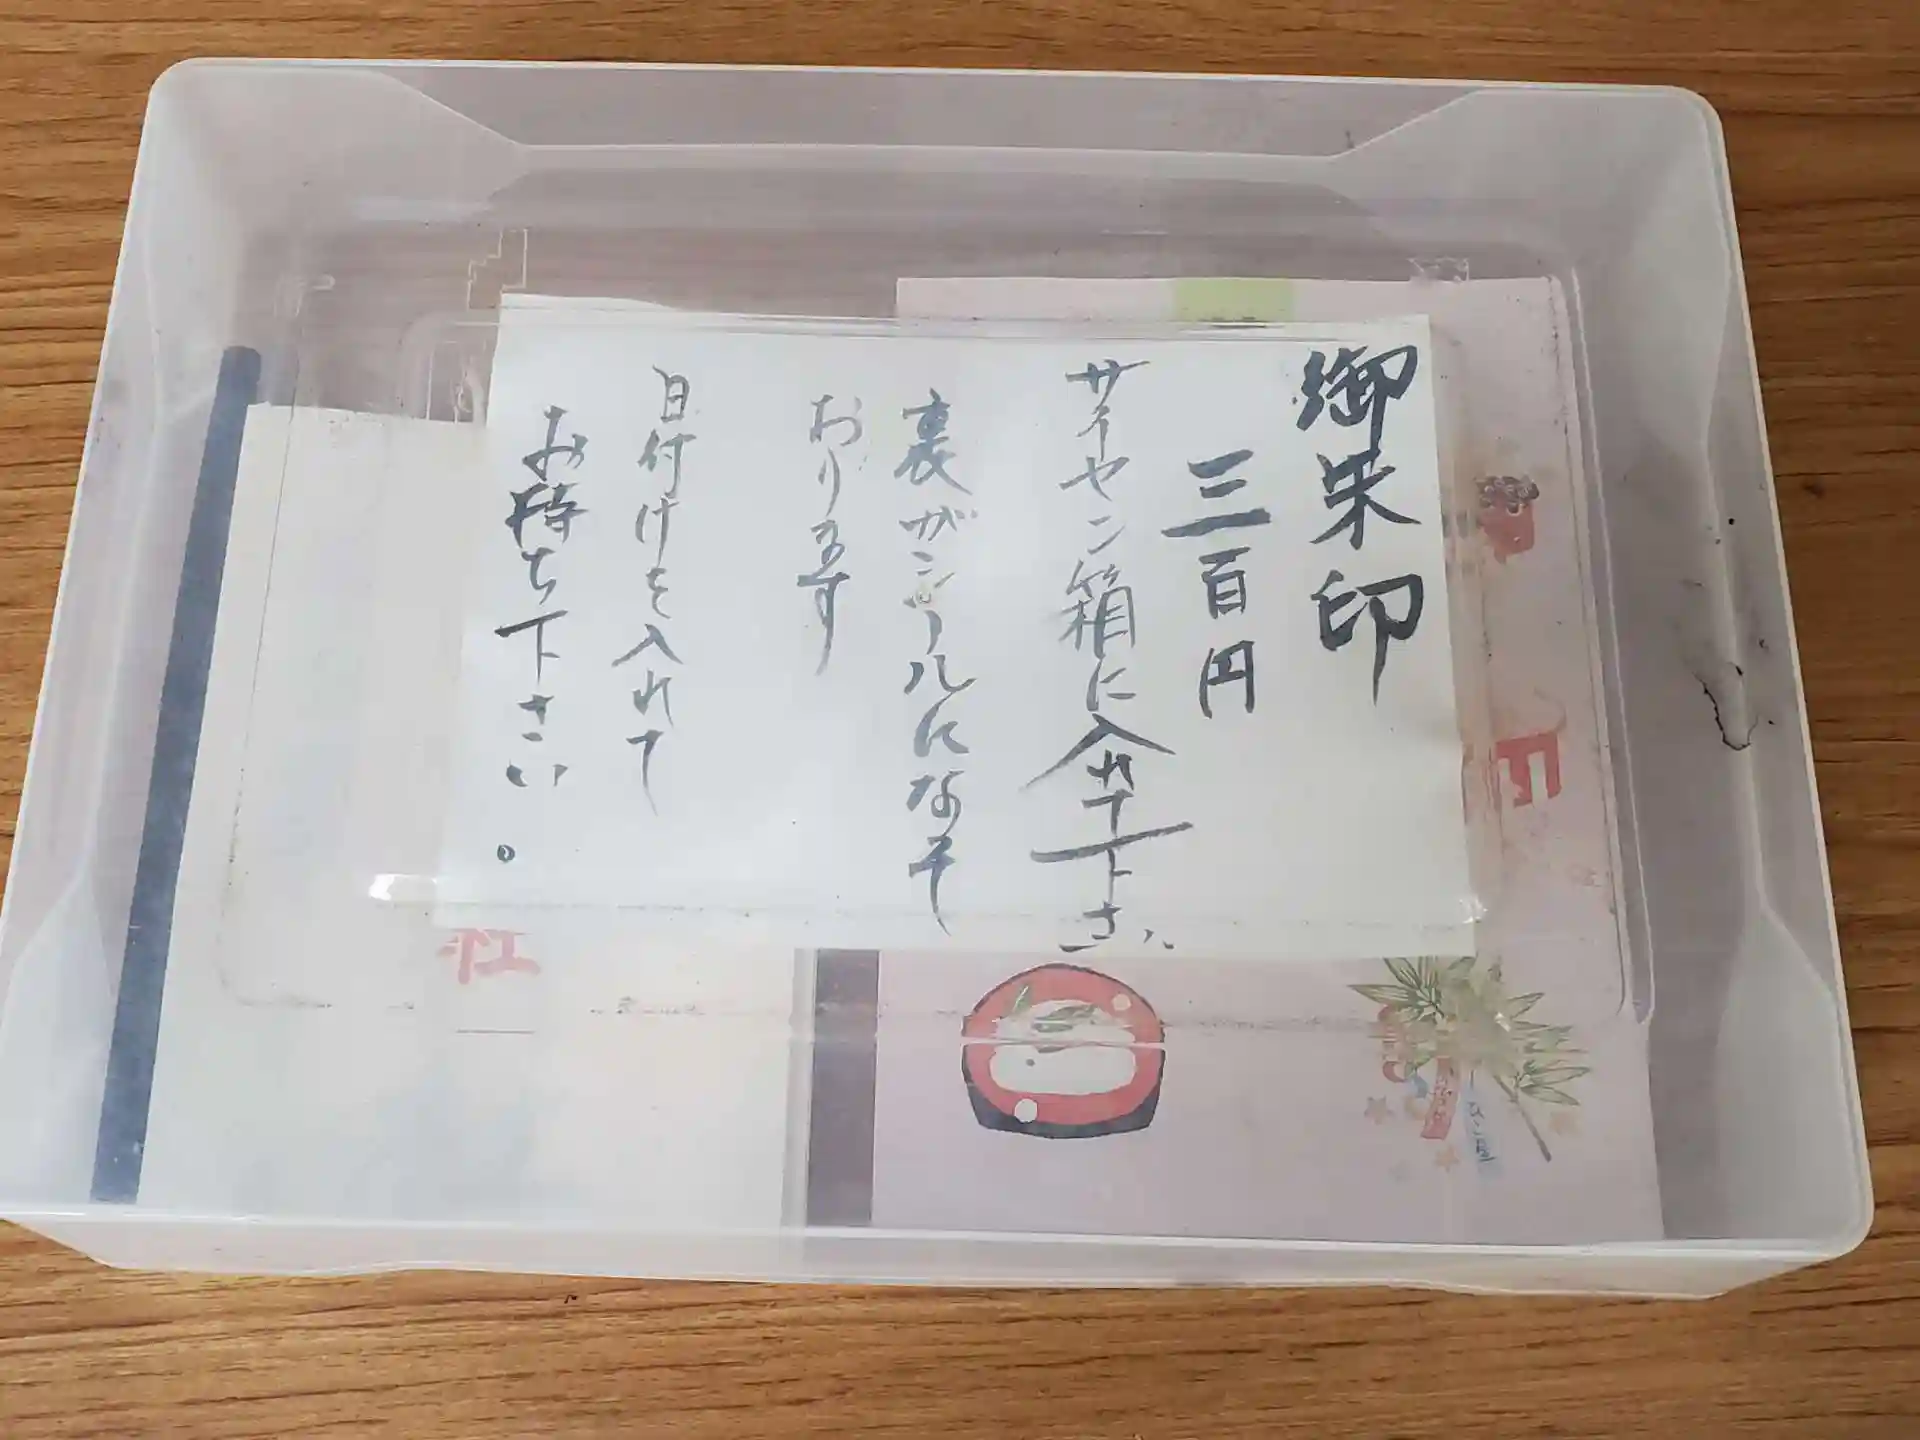 御朱印
三百円
サイセン箱に入れて下さい
裏がシールになって
おります
日付けを入れて
お持ち下さい。
社